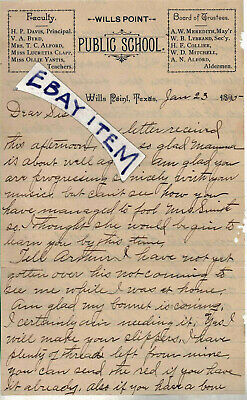 Faculty.
H. P. DAVIS, Principal.
V. A. BYRD,
MRS. T. C. ALFORD,
MISS LUCRETIA CLAPP,
MISS OLLIE YANTIS,
Teachers.
WILLS POINT
PUBLIC SCHOOL.
Board of Trustees.
A. W. MEREDITH, May'r
W. B. LYBRAND, Sec'y.
H. F. COLLIER,
W. D. MITCHELL,
A. N. ALFORD,
Aldermen.
Wills Point, Texas, Jan 23 189
Dear Sis
letter received
this afternoon, so glad Mamma
is about well again. Am glad you
are progressing so nicely with your
music, but can't see how you
have managed to fool Mrs. Smith
so, thought she would begin to
learn you by this time.
Tell Arthur I have not yet
gotten over his not coming to
see me while I was at home.
Am glad my bonnet is coming,
I certainly am needing it. Yes I
will make your slippers, I have
plenty of thread left from mine,
you can send the red if you have
it already, also if you have a bow
EBAY ITEM